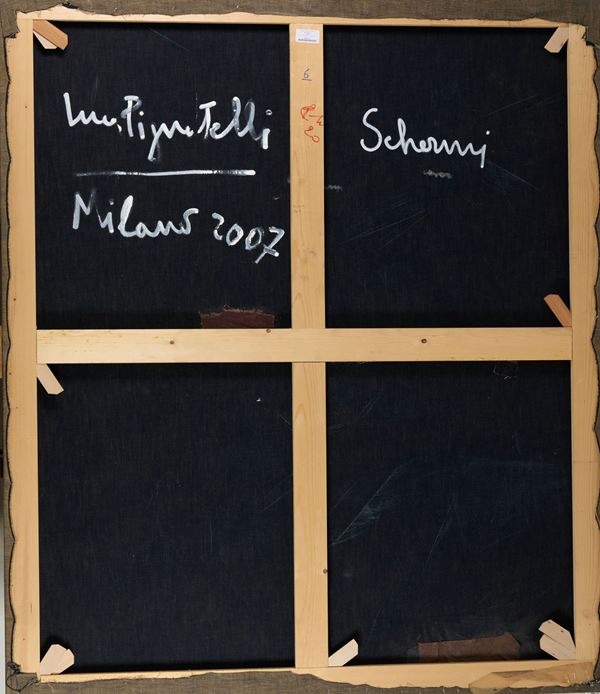 Luca Pignatelli
Milano 2007
Schermi
6